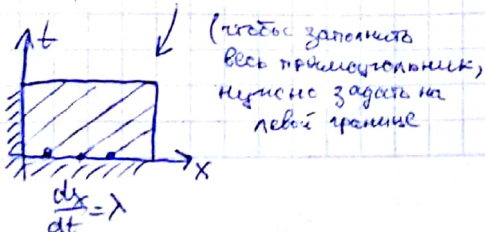 t
(чтобы заполнить
весь прямоугольник,
нужно задать на
левой границе
x
dx/dt = λ